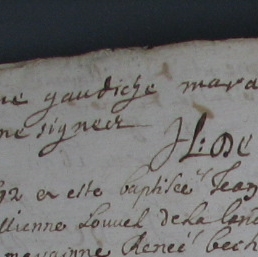 ne gaudiche mara
ne signer
H L: De
92 a este baptisée Jean
Etienne Louuel de la Cand
mayainne Reneé bech